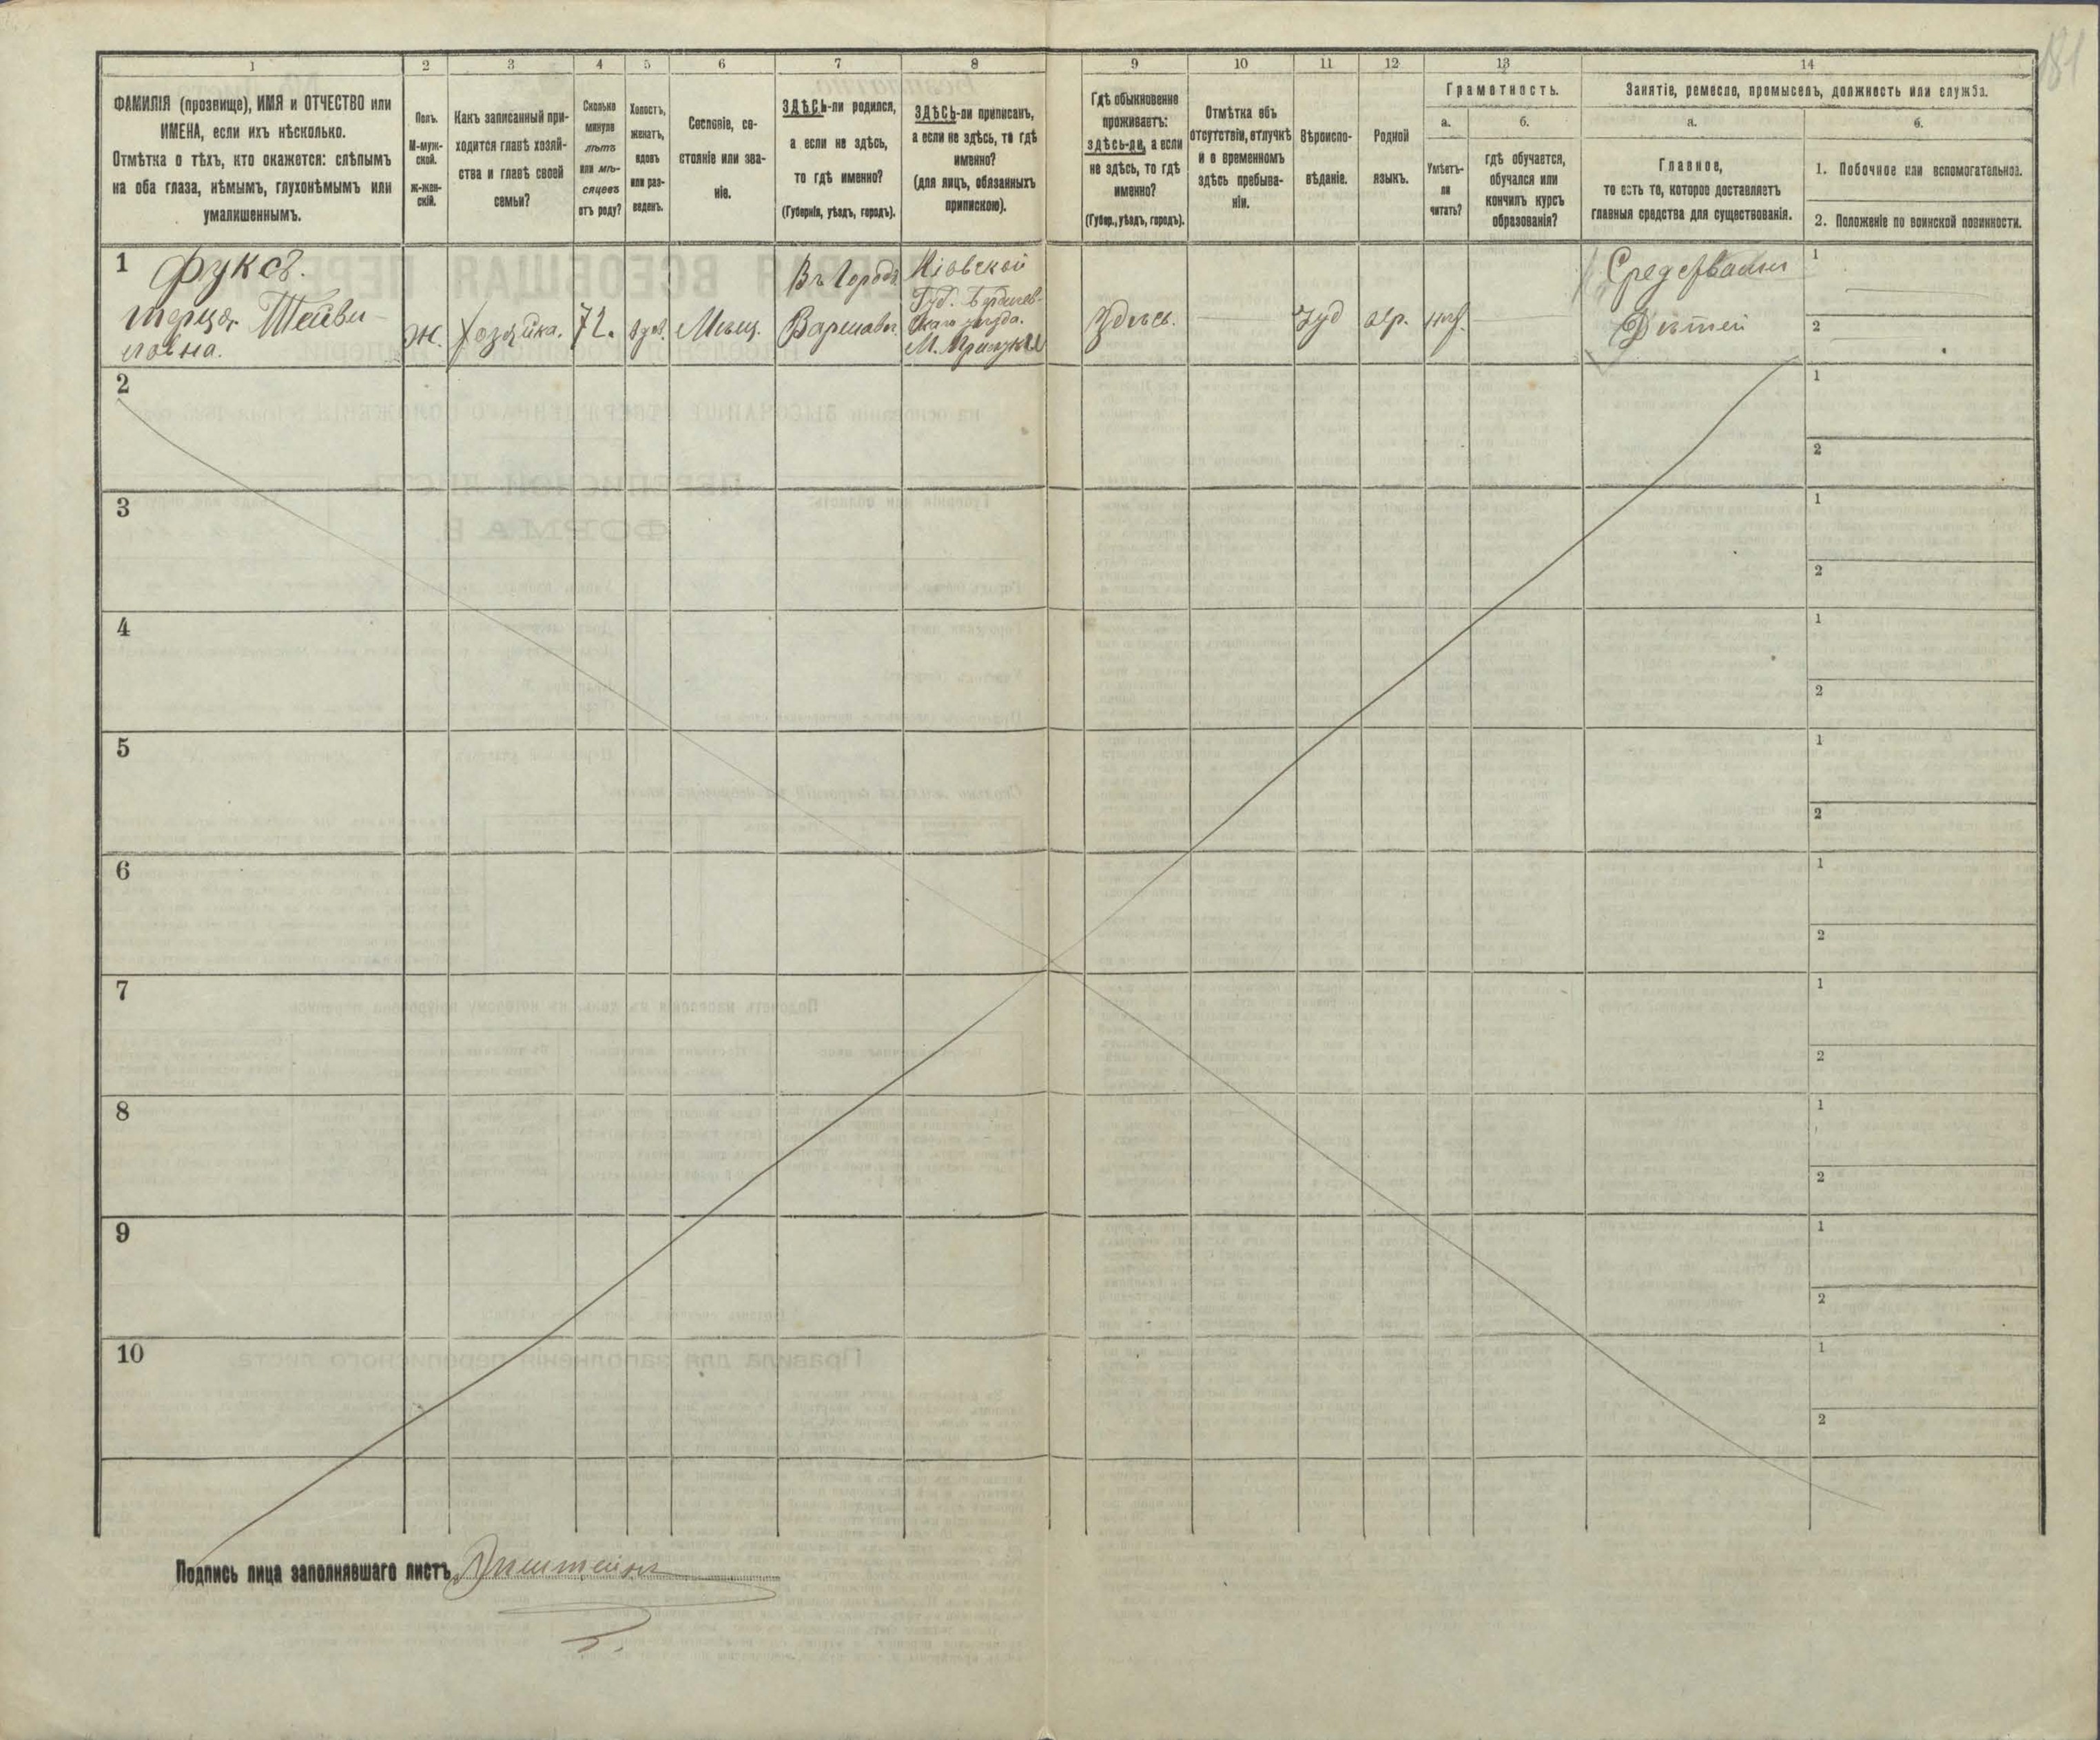 181
1
2
3
4
5
6
7
8
9
10
11
12
13
14
ФАМИЛІЯ (прозвище), ИМЯ и ОТЧЕСТВО или
ИМЕНА, если ихъ нѣсколько.
Отмѣтка о тѣхъ, кто окажется: слѣпымъ
на оба глаза, нѣмымъ, глухонѣмымъ или
умалишеннымъ.
Полъ.
М-муж-
ской.
Ж-жен-
скій.
Какъ записанный при-
ходится главѣ хозяй-
ства и главѣ своей
семьи?
Сколько
минуло
лѣтъ
или мѣ-
сяцевъ
отъ роду?
Холостъ,
женатъ,
вдовъ
или раз-
веденъ.
Сословіе, со-
стояніе или зва-
ніе.
ЗДѢСЬ-ли родился,
а если не здѣсь,
то гдѣ именно?
(Губернія, уѣздъ, городъ).
ЗДѢСЬ-ли приписанъ,
а если не здѣсь, то гдѣ
именно?
(для лицъ, обязанныхъ
припискою).
Гдѣ обыкновенно
проживаетъ:
здѣсь-ли, а если
не здѣсь, то гдѣ
именно?
(Губер., уѣздъ, городъ).
Отмѣтка объ
отсутствіи, отлучкѣ
и о временномъ
здѣсь пребыва-
ніи.
Вѣроиспо-
вѣданіе.
Родной
языкъ.
Грамотность.
а.
б.
Умѣетъ-
ли
читать?
гдѣ обучается,
обучался или
кончилъ курсъ
образованія?
Занятіе, ремесло, промыселъ, должность или служба.
а.
б.
Главное,
то есть то, которое доставляетъ
главныя средства для существованія.
1. Побочное или вспомогательное.
2. Положеніе по воинской повинности.
1
Фуксъ.
Ж.
Хозяйка.
72.
Вдов.
Мѣщ.
Въ Городѣ
Варшавѣ
Кіовской
Губ. Бердичев-
скаго уѣзда.
М. Прилуки
Здѣсь.
Іуд
евр.
нѣт.
Средствами
Дѣтей
1
2
2
1
2
3
1
2
4
1
2
5
1
2
6
1
2
7
1
2
8
1
2
9
1
2
10
1
2
Подпись лица заполнявшаго листъ